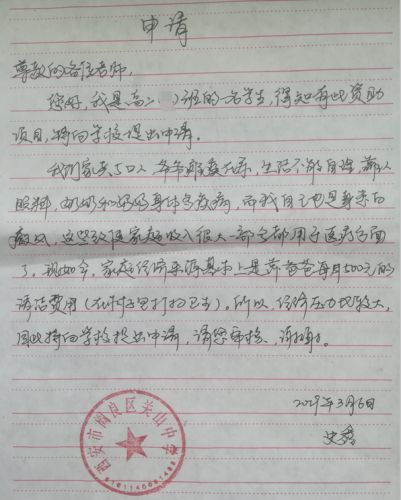 申请
尊敬的各位老师,
您好,我是高二( )班的一名学生,得知有此资助
项目,特向学校提出申请。
我们家共5口人,爷爷 ,生活不能自理,需人
照料,奶奶和妈妈身体多疾病,而我自己也是身患白
癜风,这些致使家庭收入很大一部分都用于医疗方面
了。现如今,家庭经济来源基本上是靠爸爸每月500元的
清洁费用(在村子里打扫卫生)。所以,经济压力比较大,
因此特向学校提出申请,请您审核、谢谢。
3月6日
西安市阎良区关山中学